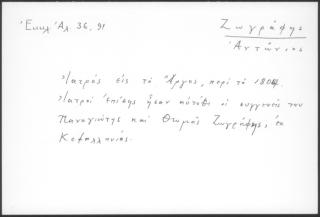 Ἐκκλ Ἀλ. 36, 91
Ζωγράφης
Ἀντώνιος
Ἰατρὸς εἰς τὸ Ἄργος, περὶ τὸ 1804.
Ἰατροὶ ἐπίσης ἦσαν αὐτόθι οἱ συγγενεῖς του
Παναγιώτης καὶ Θωμᾶς Ζωγράφης, ἐκ
Κεφαλληνίας.